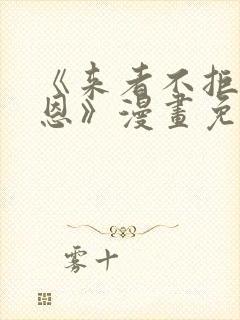 《来者不拒
恩》漫畫免
雾十